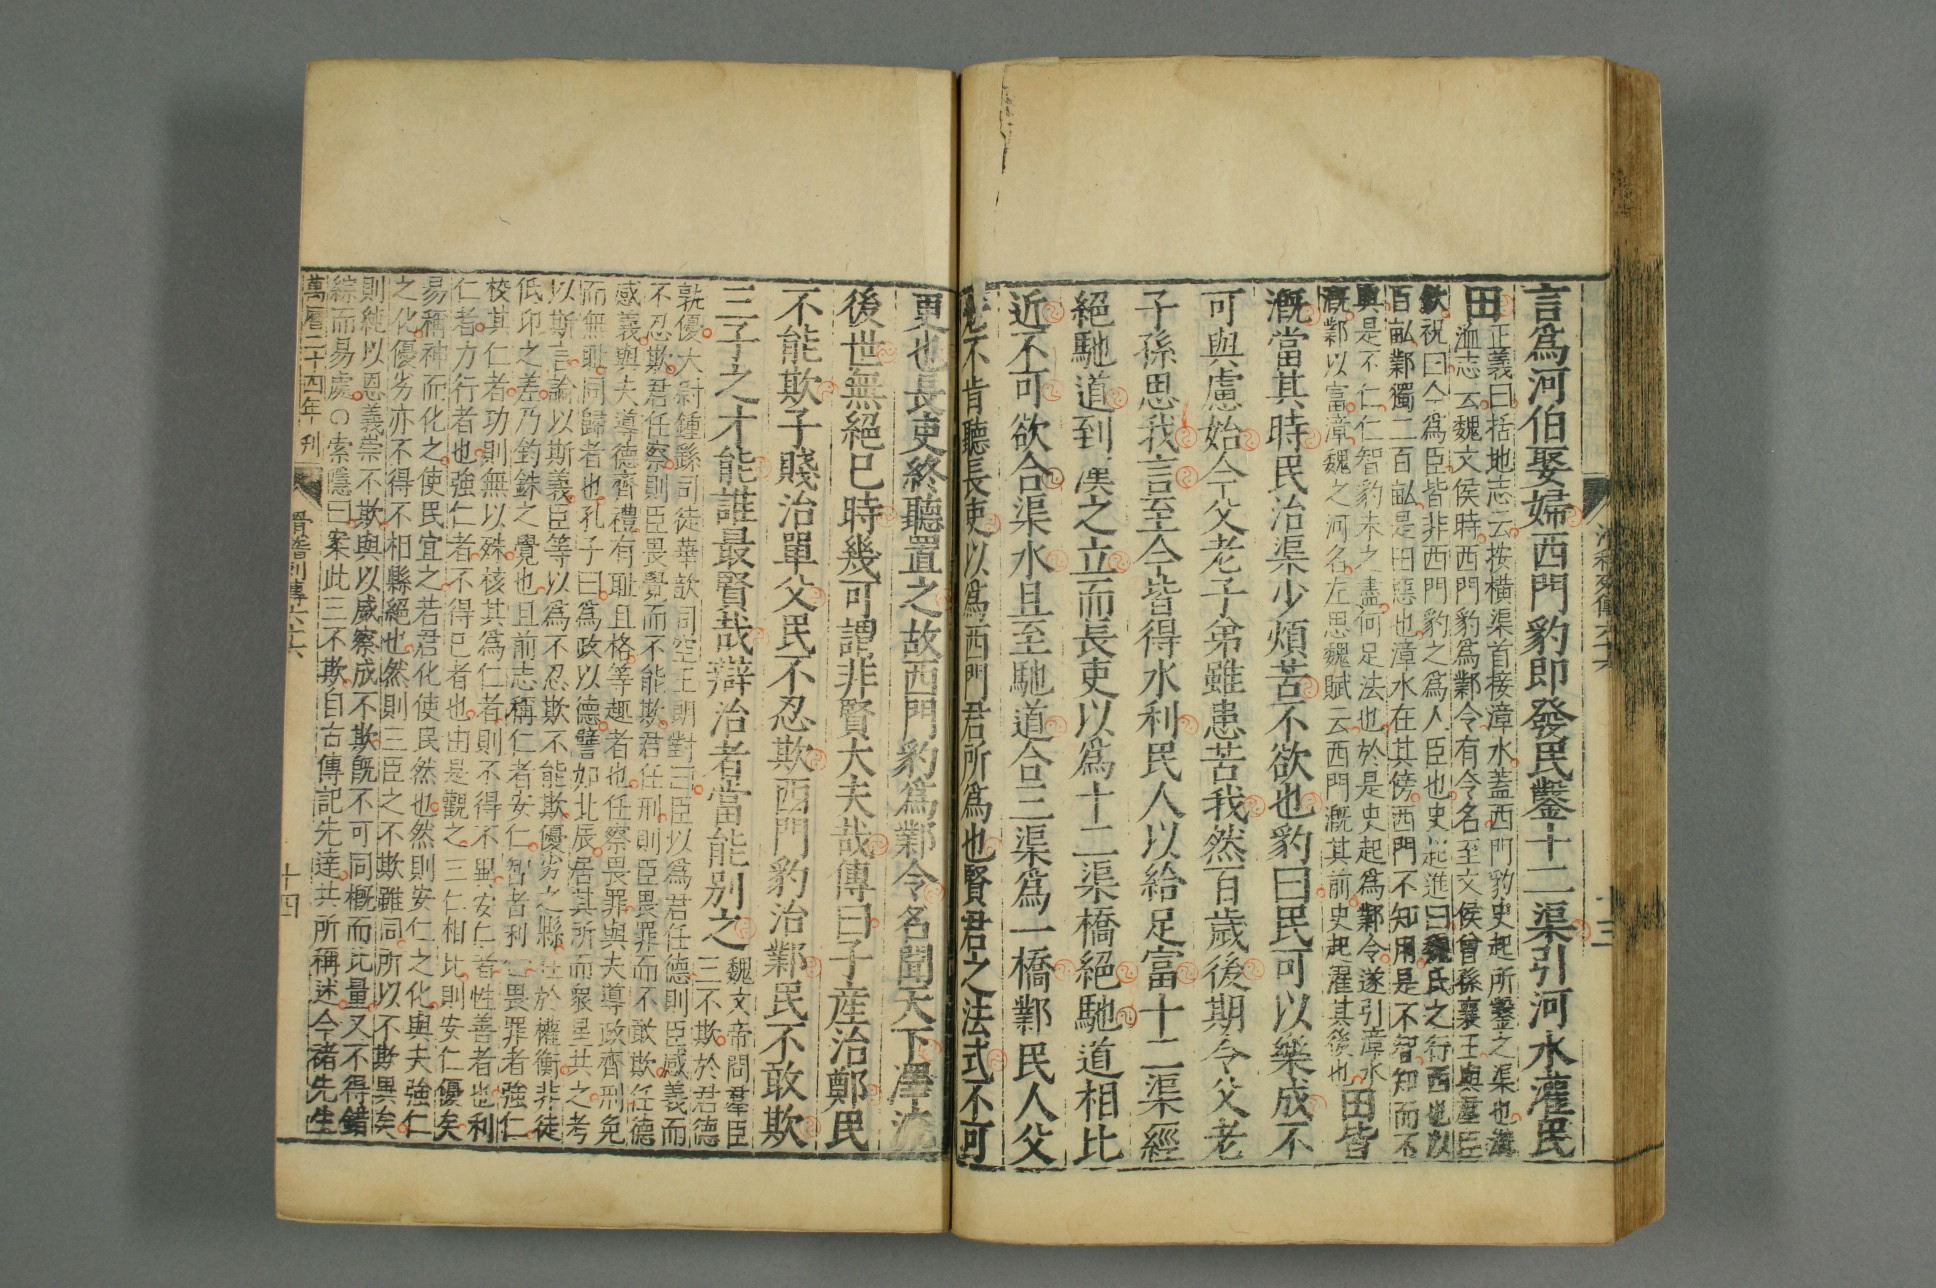 言爲河伯娶婦西門豹即發民鑿十二渠引河水灌民
田
正義曰括地志云按橫渠首接漳水蓋西門豹史起所鑿之渠也溝
洫志云魏文侯時西門豹爲鄴令有令名至文侯曾孫襄王與羣臣
飲祝曰令爲臣皆非西門豹之爲人臣也史起進曰魏氏之行西也以
百畝鄴獨二百畝是田惡也漳水在其傍西門不知用是不智知而不
與是不仁仁智豹未之盡何足法也於是史起爲鄴令遂引漳水
漑鄴以富漳魏之河名左思魏賦云西門漑其前史起灌其後也
田皆
漑當其時民治渠少煩苦不欲也豹曰民可以樂成不
可與慮始今父老子弟雖患苦我然百歲後期令父老
子孫思我言至今皆得水利民人以給足富十二渠經
絕馳道到漢之立而長吏以爲十二渠橋絕馳道相比
近不可欲合渠水且至馳道合三渠爲一橋鄴民人父
老不肯聽長吏以爲西門君所爲也賢君之法式不可
更也長吏終聽置之故西門豹爲鄴令名聞天下澤流
後世無絕已時幾可謂非賢大夫哉傳曰子産治鄭民
不能欺子賤治單父民不忍欺西門豹治鄴民不敢欺
三子之才能誰最賢哉辯治者當能別之
魏文帝問羣臣
三不欺於君德
孰優大尉鍾繇司徒華歆司空王朗對曰臣以爲君任德則臣感義而
不忍欺君任察則臣畏覺而不能欺君任刑則臣畏罪而不敢欺任德
感義與夫導德齊禮有耻且格等趣者也任察畏罪與夫導政齊刑免
而無耻同歸者也孔子曰爲政以德譬如北辰居其所而衆星共之考
以斯言論以斯義臣等以爲不忍欺不能欺優劣之縣在於權衡非徒
低卬之差乃鈞銖之覺也且前志稱仁者安仁智者利仁畏罪者強仁
校其仁者功則無以殊核其爲仁者則不得不異安仁者性善者也利
仁者力行者也強仁者不得已者也由是觀之三仁相比則安仁優矣
易稱神而化之使民宜之若君化使民然也然則安仁之化與夫強仁
之化優劣亦不得不相縣絕也然則三臣之不欺雖同所以不欺異矣
則純以恩義崇不欺與以威察成不欺旣不可同槪而比量又不得錯
綜而易處○索隱曰案此三不欺自古傳記先達共所稱述今褚先生
萬曆二十四年刊
滑稽列傳六十六
十四